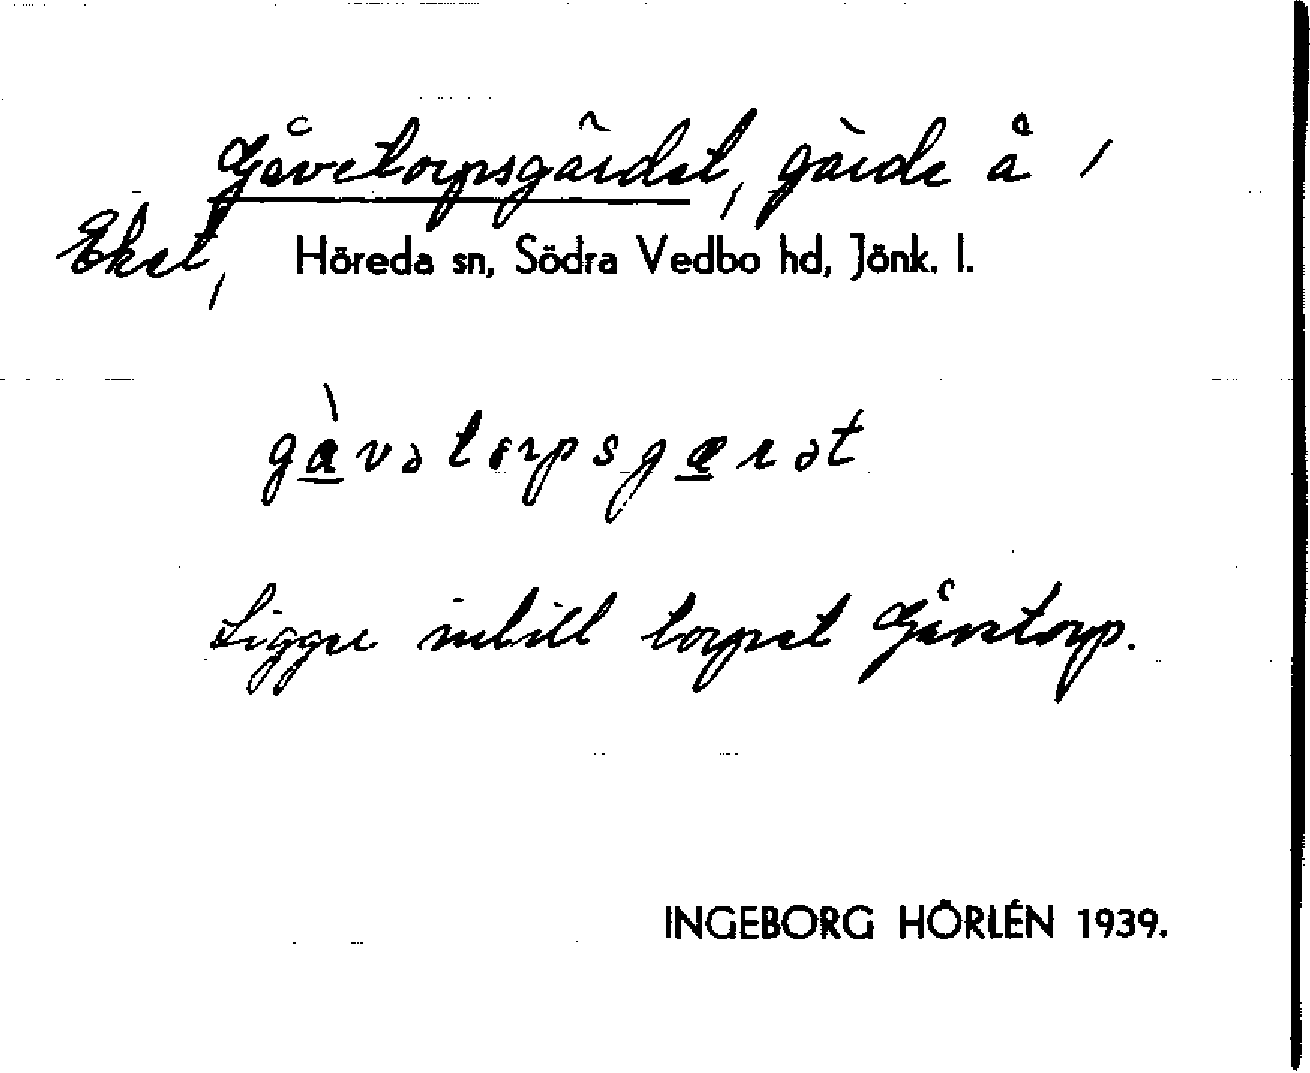 Gåvetorpsgärdet, gärde å /
Eket, Höreda sn, Södra Vedbo hd, Jönk. l.
gàvətorpsjærət
Ligger intill torpet Gåvetorp.
INGEBORG HÖRLÉN 1939.